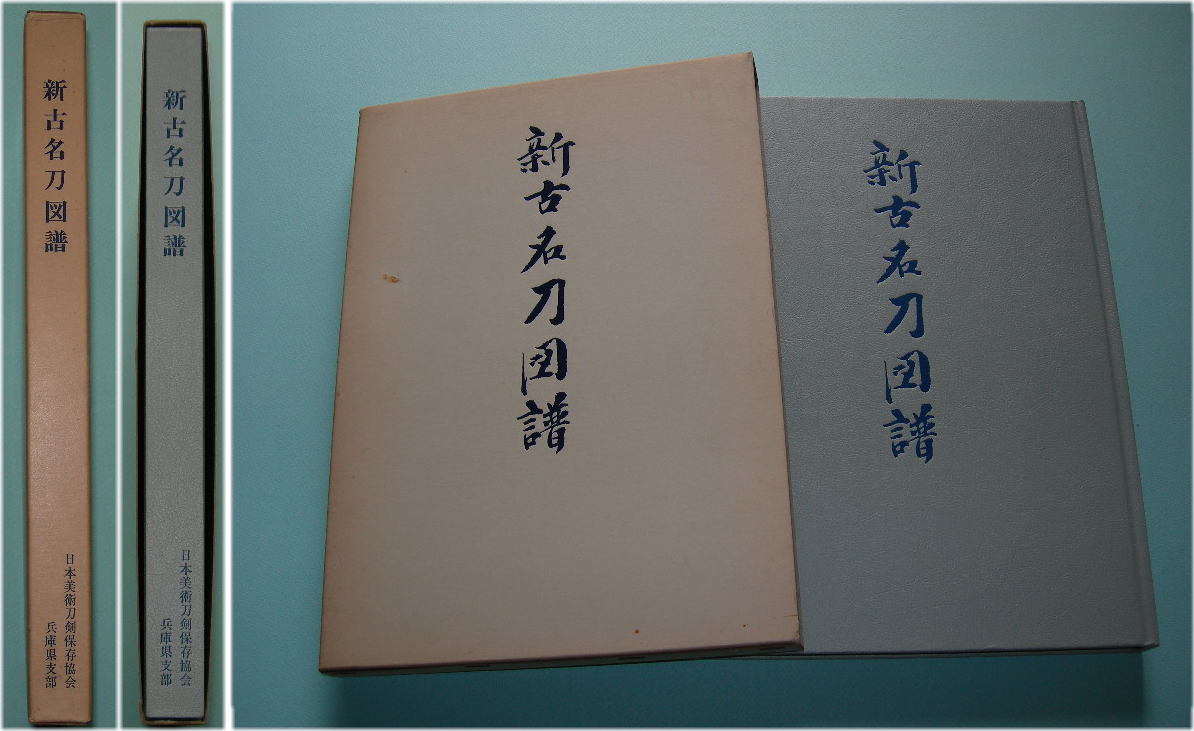 新古名刀図譜
日本美術刀剣保存協会
兵庫県支部
新古名刀図譜
日本美術刀剣保存協会
兵庫県支部
新古名刀図譜
新古名刀図譜